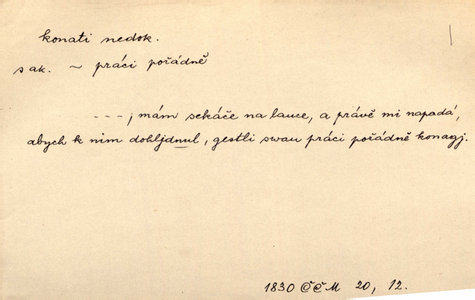 konati nedok.
s ak. ~ práci pořádně
---, mám sekáče na lauce, a právě mi napadá,
abych k nim dohljdnul, gestli swau práci pořádně konagj.
1830 ČČM 20, 12.